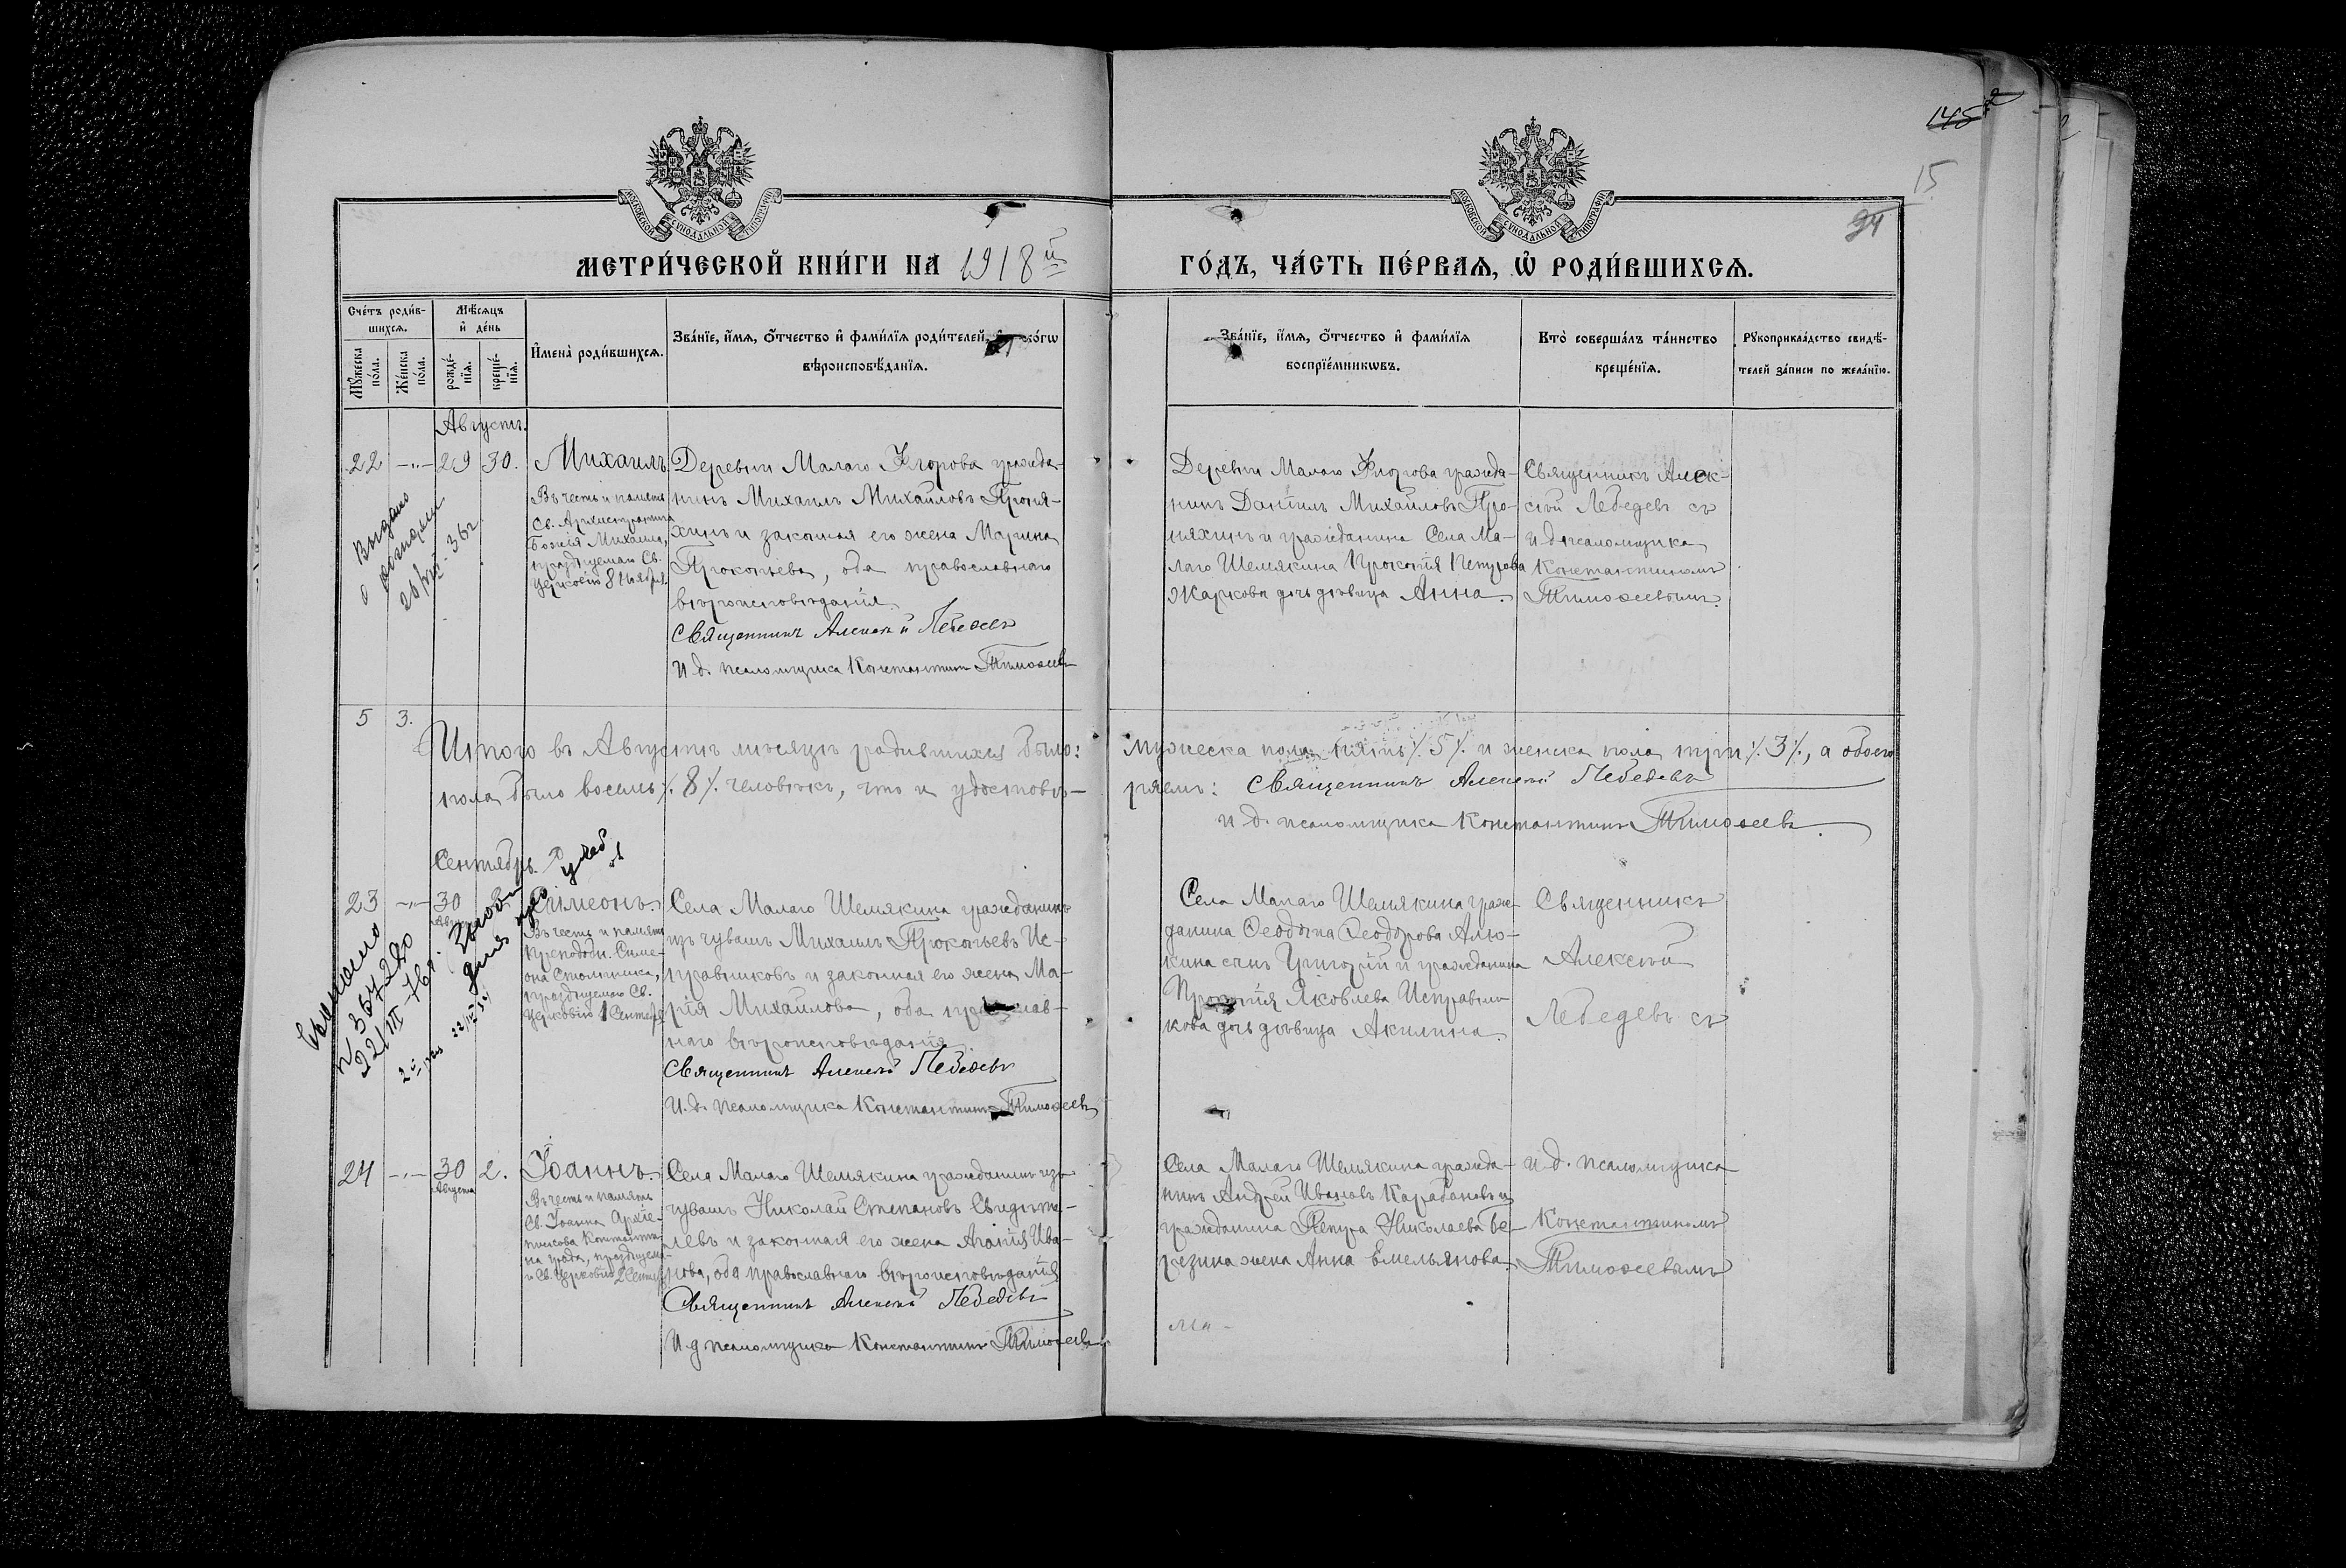 145 2
15
24
МОСКОВСКОЙ СѴНОДАЛЬНОЙ ТИПОГРАФІИ
МОСКОВСКОЙ СѴНОДАЛЬНОЙ ТИПОГРАФІИ
МЕТРИ́ЧЕСКОЙ КНИ́ГИ НА 1918й
ГО́ДЪ, ЧА́СТЬ ПЕ́РВАѦ, Ѡ҆ РОДИ́ВШИХСѦ.
Счéтъ роди́в-
шихсѧ.
Мꙋ́жеска
по́ла.
Же́нска
по́ла.
Мѣ́сѧцъ
и҆ де́нь
рожде́-
нїѧ.
креще́-
нїѧ.
И҆мена̀ роди́вшихсѧ.
Зва́нїе, и҆́мѧ, ѻ҆́тчество и҆ фами́лїѧ роди́телей, и҆ ко́гѡ
вѣроисповѣ́данїѧ.
Зва́нїе, и҆́мѧ, ѻ҆́тчество и҆ фами́лїѧ
воспрїе́мникѡвъ.
Кто̀ соверша́лъ та́инство
креще́нїѧ.
Рꙋкоприкла́дство свидѣ́-
телей за́писи по жела́нїю.
Августъ.
22 -"- 29 30.
Михаилъ
Въ честь и память
Св. Архистратига
Божія Михаила,
празднуемаго Св.
Церковію 8 Ноября.
Деревни Малаго Фторова гражда-
нинъ Михаилъ Михайловъ Проня-
хинъ и законная его жена Марина
Прокопьева, оба православнаго
вѣроисповѣданія.
Священникъ Алексѣй Лебедевъ
И. д. псаломщика Константинъ Тимоѳеевъ
Деревни Малаго Фторова гражда-
нинъ Даніилъ Михайловъ Про-
няхинъ и гражданина Села Ма-
лаго Шемякина Прокопія Петрова
Жаркова дочь дѣвица Анна.
Священникъ Алек-
сѣй Лебедевъ съ
и. д. псаломщика
Константиномъ
Тимоѳеевымъ.
Выдано
о
36 г.
5 3.
Итого въ Августѣ мѣсяцѣ родившихся было:
мужеска пола пять ٪ 5 ٪ и женска пола три ٪ 3 ٪, а обоего
пола было восемь ٪ 8 ٪ человѣкъ, что и удостовѣ-
ряемъ: Священникъ Алексѣй Лебедевъ
и. д. псаломщика Константинъ Тимоѳеевъ.
Сентябрь.
23 -"- 30
Августа
Симеонъ.
Въ честь и память
Преподобн. Симе-
она Столпника,
празднуемаго Св.
Церковію 1 Сентября
Села Малаго Шемякина гражданинъ
изъ чувашъ Михаилъ Прокопьевъ Ис-
правниковъ и законная его жена Ма-
рія Михайлова, оба православ-
наго вѣроисповѣданія.
Священникъ Алексѣй Лебедевъ
И. д. псаломщика Константинъ Тимоѳеевъ
Села Малаго Шемякина граж-
данина Ѳедота Ѳеодорова Алю-
кина сынъ Григорій и гражданина
Прокопія Яковлева Исправни-
кова дочь дѣвица Акилина.
Священникъ
Алексѣй
Лебедевъ съ
24 -"- 30 2.
Августа
Іоаннъ.
Въ честь и память
Св. Іоанна Архіе-
пископа Константи-
на града, празднуема-
го Св. Церковію 2 Сентяб.
Села Малаго Шемякина гражданинъ изъ
чувашъ Николай Степановъ Свидѣте-
левъ и законная его жена Агапія Ива-
нова, оба православнаго вѣроисповѣданія
Священникъ Алексѣй Лебедевъ
И. д. псаломщика Константинъ Тимоѳеевъ
Села Малаго Шемякина гражда-
нинъ Андрей Ивановъ Карабановъ и
гражданина Петра Николаева Бе-
резина жена Анна Емельянова.
и. д. псаломщика
Константиномъ
Тимоѳеевымъ